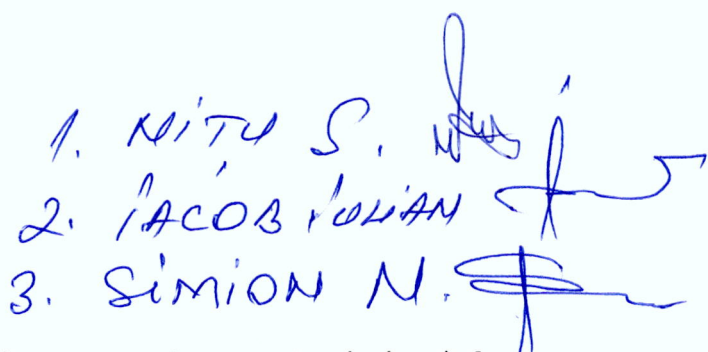 1. NiTU S.
2. iACOB iULiAN
3. SiMiON N.